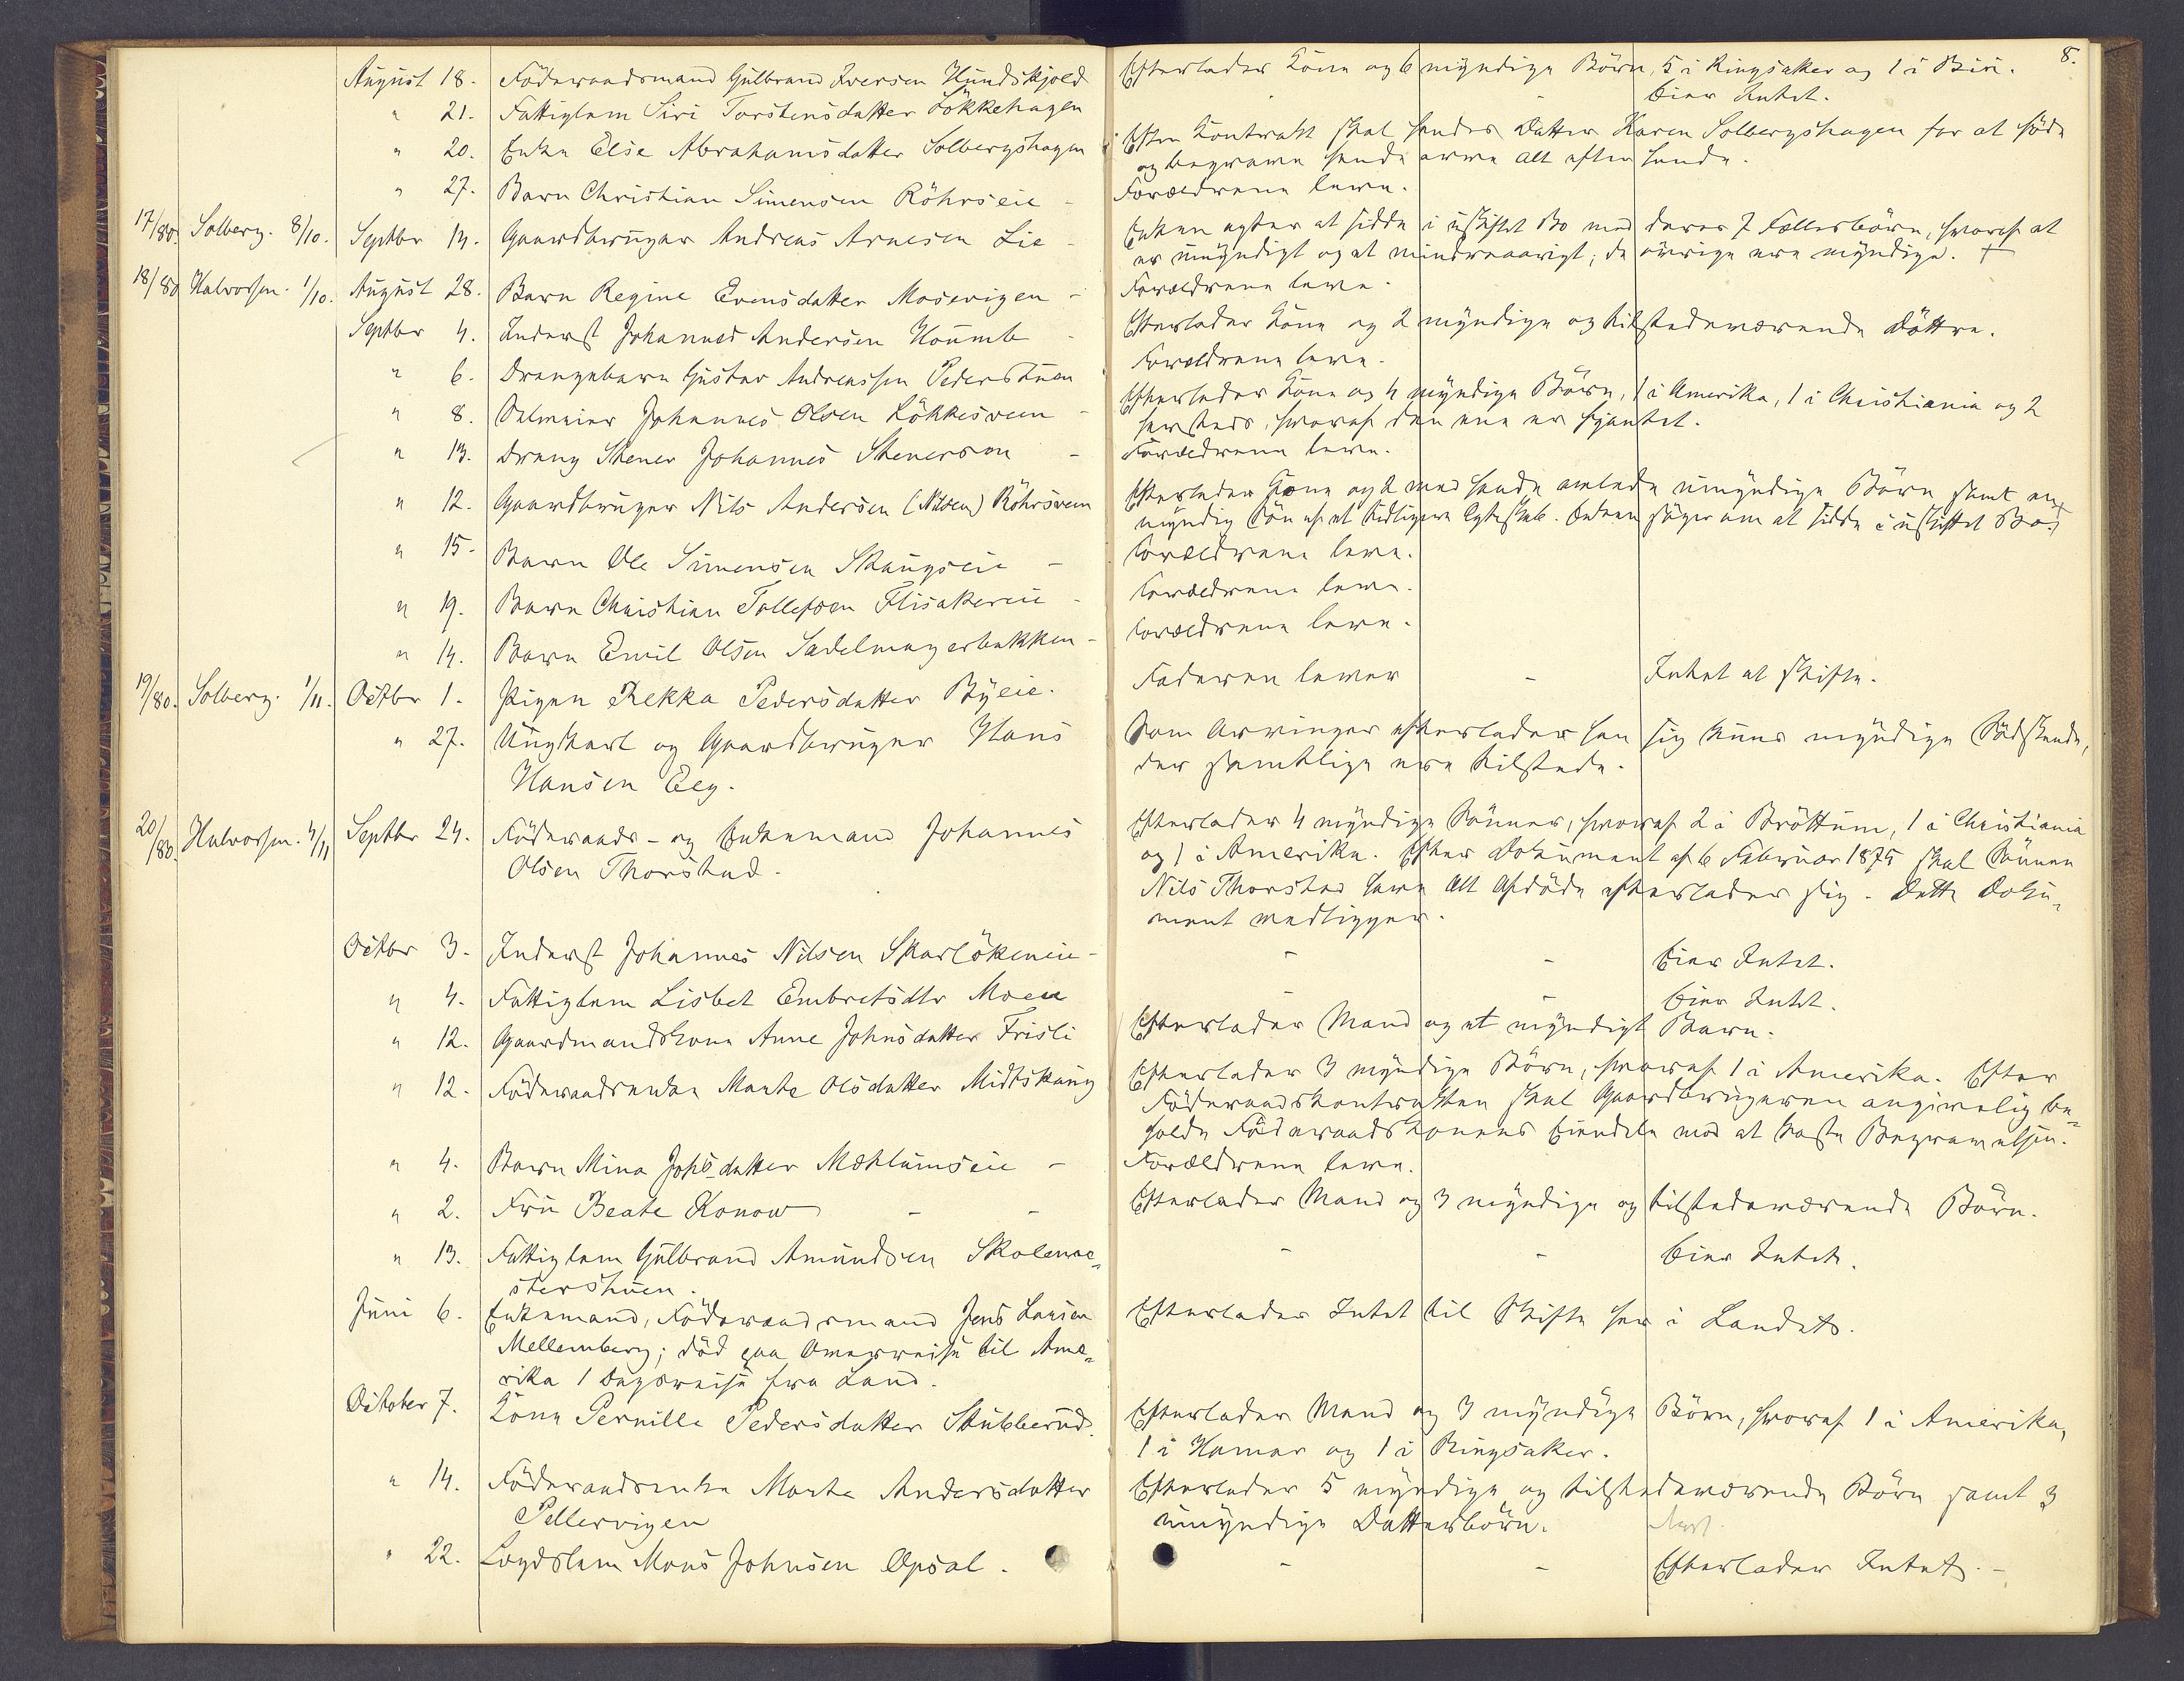 8.
August 18. Föderaadsmand Gulbrand Iversen Hundskjold
Efterlader Kone og 6 myndige Börn, 5 i Ringsaker og 1 i Biri.
" 21. Fattiglem Siri Torstensdatter Lökkehagen - - Eier Intet.
" 20. Enke Else Abrahamsdatter Solbergshagen
Efter Kontrakt skal hendes Datter Karen Solbergshagen for at föde
og begrave hende arve alt efter hende.
" 27. Barn Christian Simensen Röhrseie -
Forældrene leve.
17/80. Solberg. 8/10. Septbr 14. Gaardbruger Andreas Arnesen Lie -
Enken agter at sidde i uskiftet Bo med deres 7 Fællesbörn, hvoraf et
er umyndigt og et mindreaarigt; de övrige ere myndige. +
18/80 Halvorsen. 1/10. August 28. Barn Regine Evensdatter Mosevigen -
Forældrene leve.
Septbr 4. Inderst Johannes Andersen Houmb -
Efterlader Kone og 2 myndige og tilstedeværende Döttre.
" 6. Drengebarn Gustav Andreassen Pederstuen
Forældrene leve.
" 8. Selveier Johannes Olsen Lökkesveen -
Efterlader Kone og 4 myndige Börn, 1 i Amerika, 1 i Christiania og 2
hersteds, hvoraf den ene er sjantet.
" 13. Dreng Stener Johannes Stenersen -
Forældrene leve.
" 12. Gaardbruger Nils Andersen (Nilsen) Röhrsveen
Efterlader Kone og 2 med hende avlede umyndige Börn samt en
myndig Sön af et tidligere Egteskab. Enken söger om at sidde i uskiftet Bo. +
" 15. Barn Ole Simensen Skaugseie -
Forældrene leve.
" 19. Barn Christian Tollefsen Flisakereie -
Forældrene leve.
" 14. Barn Emil Olsen Sadelmagerbakken -
Forældrene leve.
19/80. Solberg. 1/11. Octbr 1. Pigen Rekka Pedersdatter Byeie.
Faderen lever - Intet at skifte.
" 27. Ungkarl og Gaardbruger Hans
Hansen Eeg.
Som Arvinger efterlader han sig kuns myndige Södskende,
der samtlige ere tilstede.
20/80. Halvorsen. 4/11 Septbr 24. Föderaads- og Enkemand Johannes
Olsen Thorstad.
Efterlader 4 myndige Sönner, hvoraf 2 i Bröttum, 1 i Christiania
og 1 i Amerika. Efter Dokument af 6 Februar 1875 skal Sönnen
Nils Thorstad have Alt Afdöde efterlader sig. Dette Doku-
ment vedligger.
Octbr 3. Inderst Johannes Nilsen Skarlökeneie - - - Eier Intet.
" 4. Fattiglem Lisbet Embretsdtr Moen - - Eier Intet.
" 12. Gaardmandskone Anne Johnsdatter Frisli
Efterlader Mand og et myndigt Barn.
" 12. Föderaadsenke Marte Olsdatter Midtskaug
Efterlader 3 myndige Börn, hvoraf 1 i Amerika. Efter
Föderaadskontrakten skal Gaardbrugeren angivelig be-
holde Föderaadskonens Eiendele mod at koste Begravelsen.
" 4. Barn Mina Johsdatter Mæhlumseie -
Forældrene leve.
" 2. Fru Beate Konow - -
Efterlader Mand og 3 myndige og tilstedeværende Börn.
" 13. Fattiglem Gulbrand Amundsen Skoleme-
sterstuen. - - Eier Intet.
Juni 6. Enkemand, Föderaadsmand Jens Larsen
Mellemberg; död paa Overreise til Ame-
rika 1 Dagsreise fra Land.
Efterlader Intet til Skifte her i Landet.
October 7. Kone Pernille Pedersdatter Stubberud.
Efterlader Mand og 3 myndige Börn, hvoraf 1 i Amerika,
1 i Hamar og 1 i Ringsaker.
" 14. Föderaadsenke Marte Andersdatter
Pellervigen
Efterlader 5 myndige og tilstedeværende Börn samt 3
umyndige Datterbörn.
" 22. Lægdslem Mons Johnsen Opsal. - - Efterlader Intet. -